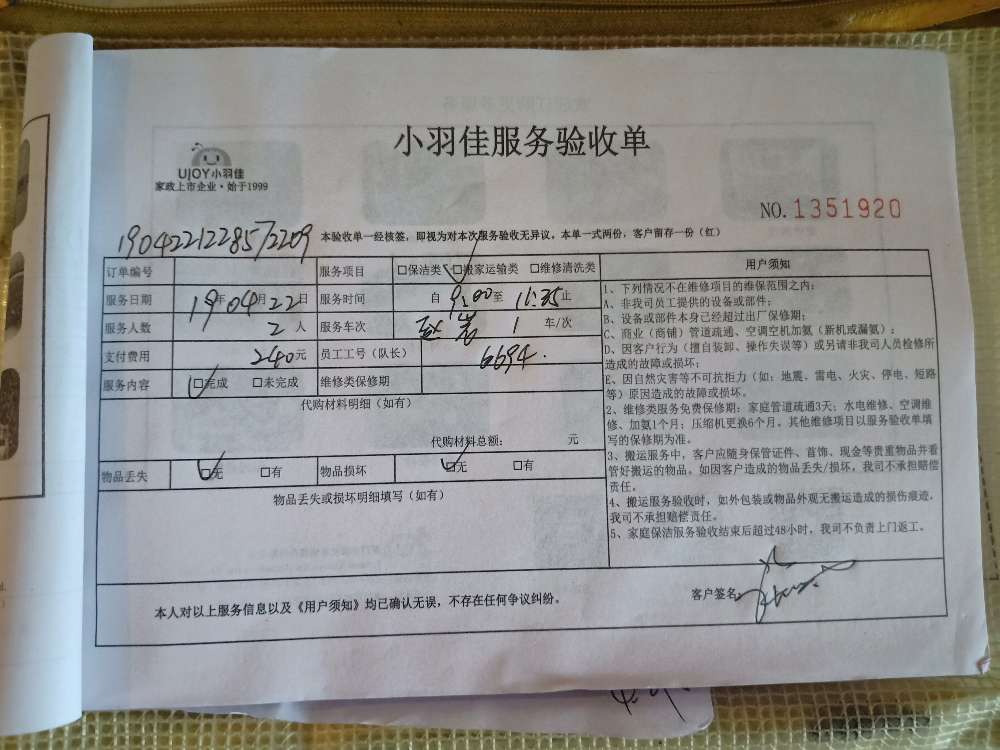 小羽佳服务验收单
UJOY小羽佳
家政上市企业·始于1999
NO.1351920
本验收单一经核签，即视为对本次服务验收无异议。本单一式两份，客户留存一份（红）
订单编号 服务项目 □保洁类 □搬家运输类 □维修清洗类
服务日期 19年04月22日 服务时间 自9:00至11:35止
服务人数 2人 服务车次 1 车/次
支付费用 240元 员工工号（队长） 6694.
服务内容 □完成 □未完成 维修类保修期
代购材料明细（如有）
代购材料总额： 元
物品丢失 □无 □有 物品损坏 □无 □有
物品丢失或损坏明细填写（如有）
用户须知
1、下列情况不在维修项目的维保范围之内：
A、非我司员工提供的设备或部件；
B、设备或部件本身已经超过出厂保修期；
C、商业（商铺）管道疏通、空调空机加氨（新机或漏氨）；
D、因客户行为（擅自装卸、操作失误等）或另请非我司人员检修所
造成的故障或损坏；
E、因自然灾害等不可抗拒力（如：地震、雷电、火灾、停电、短路
等）原因造成的故障或损坏。
2、维修类服务免费保修期：家庭管道疏通3天；水电维修、空调维
修、加氨1个月；压缩机更换6个月。其他维修项目以服务验收单填
写的保修期为准。
3、搬运服务中，客户应随身保管证件、首饰、现金等贵重物品并看
管好搬运的物品。如因客户造成的物品丢失/损坏，我司不承担赔偿
责任。
4、搬运服务验收时，如外包装或物品外观无搬运造成的损伤痕迹，
我司不承担赔偿责任。
5、家庭保洁服务验收结束后超过48小时，我司不负责上门返工。
本人对以上服务信息以及《用户须知》均已确认无误，不存在任何争议纠纷。
客户签名